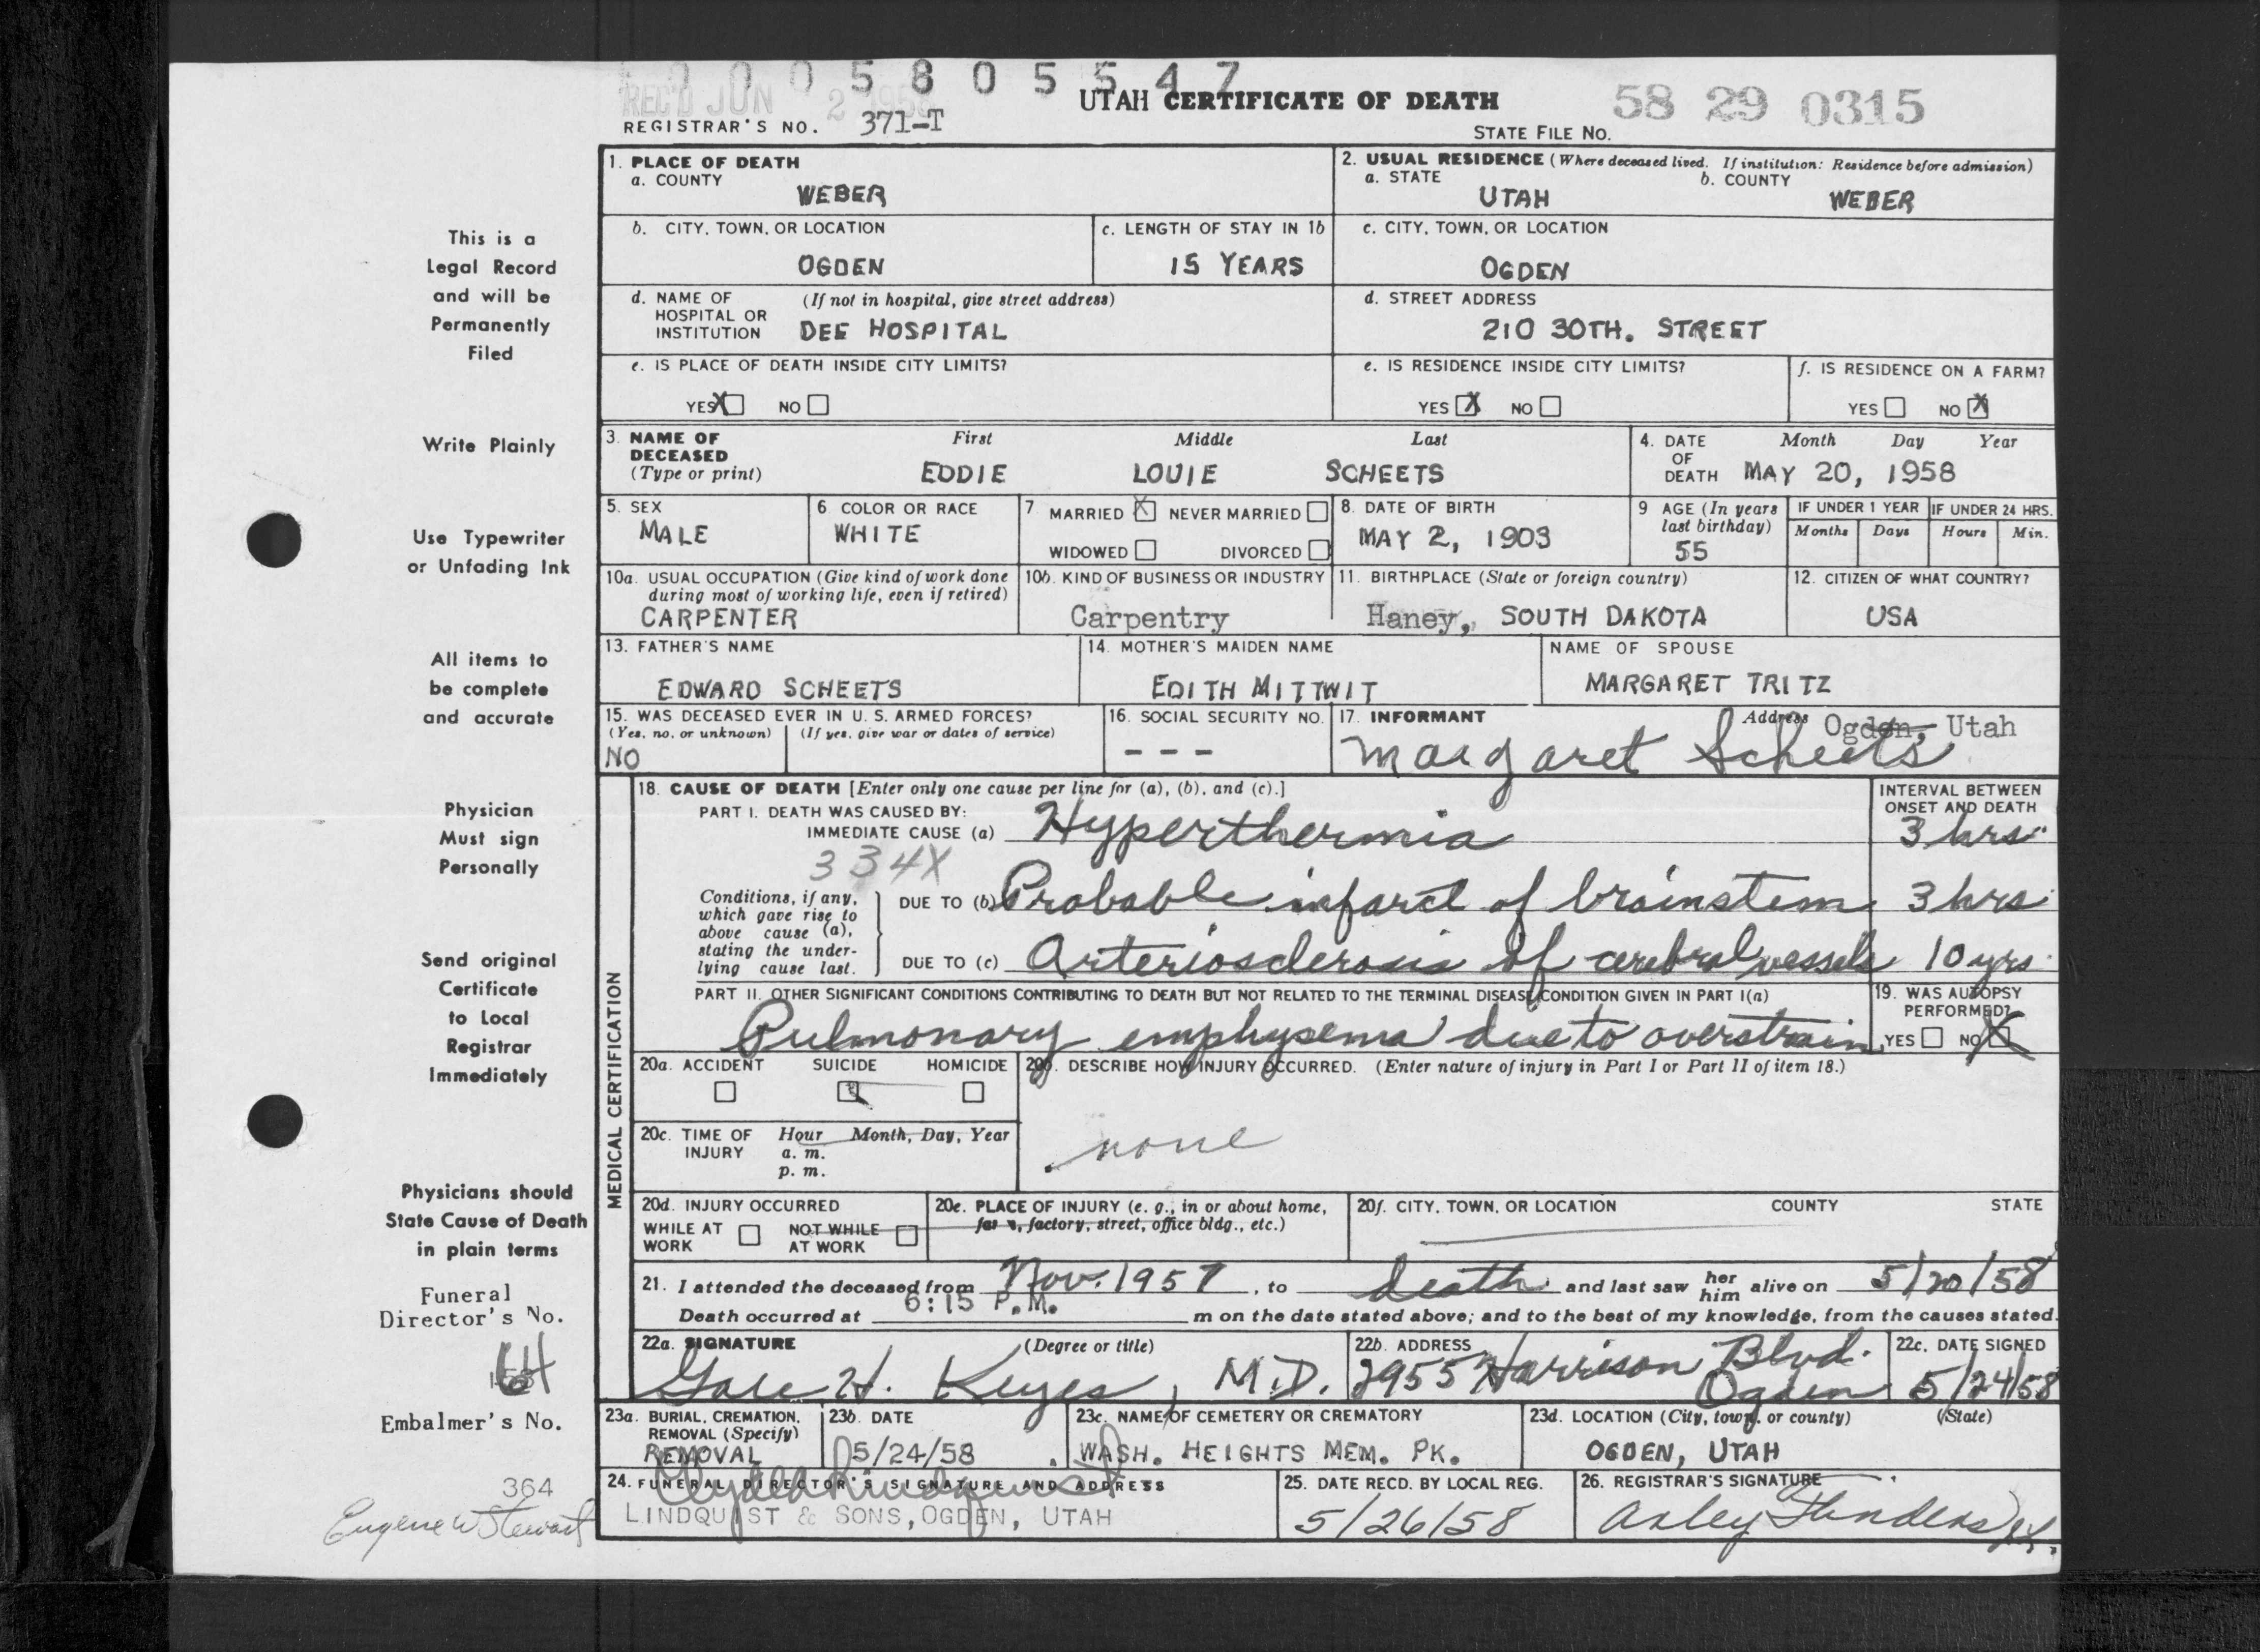 0005805547
REC'D JUN 2 1958
UTAH CERTIFICATE OF DEATH
58 29 0315
REGISTRAR'S NO. 371-T
STATE FILE NO.
This is a
Legal Record
and will be
Permanently
Filed
Write Plainly
Use Typewriter
or Unfading Ink
All items to
be complete
and accurate
Physician
Must sign
Personally
Send original
Certificate
to Local
Registrar
Immediately
Physicians should
State Cause of Death
in plain terms
Funeral
Director's No.
64
Embalmer's No.
364
Eugene W Stewart
1. PLACE OF DEATH
a. COUNTY
WEBER
b. CITY, TOWN, OR LOCATION
OGDEN
c. LENGTH OF STAY IN 1b
15 YEARS
d. NAME OF (If not in hospital, give street address)
HOSPITAL OR
INSTITUTION DEE HOSPITAL
e. IS PLACE OF DEATH INSIDE CITY LIMITS?
YES X NO
2. USUAL RESIDENCE (Where deceased lived. If institution: Residence before admission)
a. STATE b. COUNTY
UTAH WEBER
c. CITY, TOWN, OR LOCATION
OGDEN
d. STREET ADDRESS
210 30TH. STREET
e. IS RESIDENCE INSIDE CITY LIMITS?
YES X NO
f. IS RESIDENCE ON A FARM?
YES NO X
3. NAME OF First Middle Last
DECEASED
(Type or print) EDDIE LOUIE SCHEETS
4. DATE Month Day Year
OF
DEATH MAY 20, 1958
5. SEX
MALE
6. COLOR OR RACE
WHITE
7. MARRIED X NEVER MARRIED
WIDOWED DIVORCED
8. DATE OF BIRTH
MAY 2, 1903
9 AGE (In years
last birthday)
55
IF UNDER 1 YEAR IF UNDER 24 HRS.
Months Days Hours Min.
10a. USUAL OCCUPATION (Give kind of work done
during most of working life, even if retired)
CARPENTER
10b. KIND OF BUSINESS OR INDUSTRY
Carpentry
11. BIRTHPLACE (State or foreign country)
Haney, SOUTH DAKOTA
12. CITIZEN OF WHAT COUNTRY?
USA
13. FATHER'S NAME
EDWARD SCHEETS
14. MOTHER'S MAIDEN NAME
EDITH MITTWIT
NAME OF SPOUSE
MARGARET TRITZ
15. WAS DECEASED EVER IN U. S. ARMED FORCES?
(Yes, no, or unknown) (If yes, give war or dates of service)
NO
16. SOCIAL SECURITY NO.
- - -
17. INFORMANT Address Ogden, Utah
Margaret Scheets
MEDICAL CERTIFICATION
18. CAUSE OF DEATH [Enter only one cause per line for (a), (b), and (c).]
INTERVAL BETWEEN
ONSET AND DEATH
PART I. DEATH WAS CAUSED BY:
IMMEDIATE CAUSE (a) Hyperthermia 3 hrs.
334X
Conditions, if any,
which gave rise to
above cause (a),
stating the under-
lying cause last.
DUE TO (b) Probable infarct of brainstem 3 hrs.
DUE TO (c) Arteriosclerosis of cerebral vessels 10 yrs.
PART II. OTHER SIGNIFICANT CONDITIONS CONTRIBUTING TO DEATH BUT NOT RELATED TO THE TERMINAL DISEASE CONDITION GIVEN IN PART I(a)
Pulmonary emphysema due to overstrain
19. WAS AUTOPSY
PERFORMED?
YES NO X
20a. ACCIDENT SUICIDE HOMICIDE
20b. DESCRIBE HOW INJURY OCCURRED. (Enter nature of injury in Part I or Part II of item 18.)
none
20c. TIME OF Hour Month, Day, Year
INJURY a. m.
p. m.
20d. INJURY OCCURRED
WHILE AT NOT WHILE
WORK AT WORK
20e. PLACE OF INJURY (e. g., in or about home,
farm, factory, street, office bldg., etc.)
20f. CITY, TOWN, OR LOCATION COUNTY STATE
21. I attended the deceased from Nov. 1957, to death and last saw her him alive on 5/20/58
Death occurred at 6:15 P.M. m on the date stated above; and to the best of my knowledge, from the causes stated.
22a. SIGNATURE (Degree or title)
Gale H. Keyes, M.D.
22b. ADDRESS
2955 Harrison Blvd.
Ogden
22c. DATE SIGNED
5/24/58
23a. BURIAL, CREMATION,
REMOVAL (Specify)
REMOVAL
23b. DATE
5/24/58
23c. NAME OF CEMETERY OR CREMATORY
WASH. HEIGHTS MEM. PK.
23d. LOCATION (City, town, or county) (State)
OGDEN, UTAH
24. FUNERAL DIRECTOR'S SIGNATURE AND ADDRESS
LINDQUIST & SONS, OGDEN, UTAH
25. DATE RECD. BY LOCAL REG.
5/26/58
26. REGISTRAR'S SIGNATURE